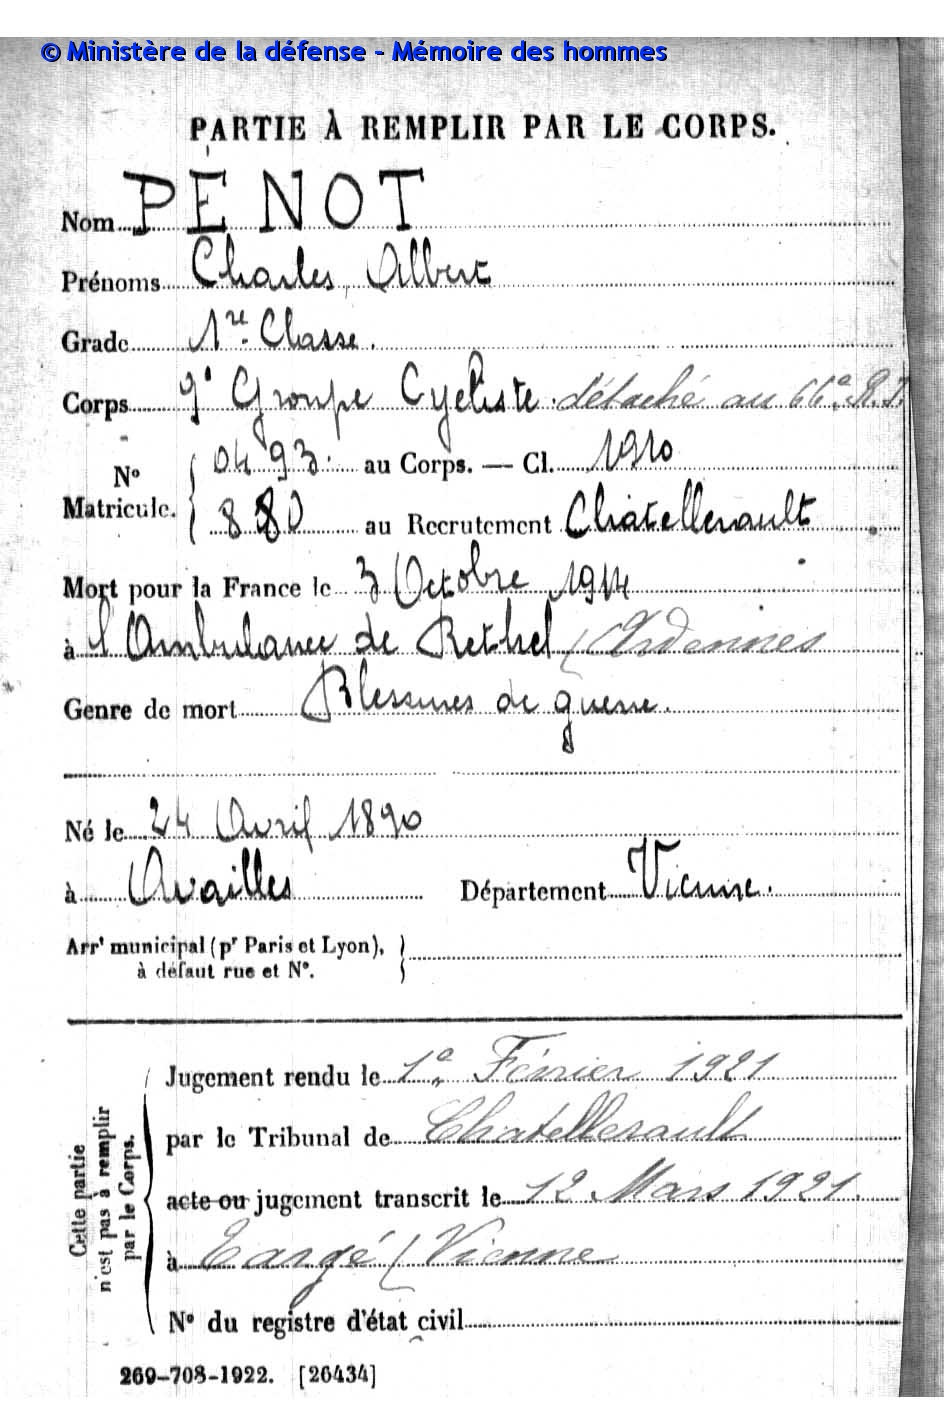 © Ministère de la défense - Mémoire des hommes
PARTIE À REMPLIR PAR LE CORPS.
Nom PENOT
Prénoms Charles, Albert
Grade 1re Classe.
Corps 9e Groupe Cycliste. détaché au 66e R.I.
No Matricule. 0493. au Corps. — Cl. 1910
880 au Recrutement Châtellerault
Mort pour la France le 3 Octobre 1914
à l'Ambulance de Rethel (Ardennes
Genre de mort Blessures de guerre.
Né le 24 Avril 1890
à Availles Département Vienne.
Arrt municipal (pr Paris et Lyon),
à défaut rue et No.
Cette partie
n'est pas à remplir
par le Corps.
Jugement rendu le 1er Février 1921
par le Tribunal de Chatellerault
acte ou jugement transcrit le 12 Mars 1921.
à Targé (Vienne
No du registre d'état civil
269-708-1922. [26434]